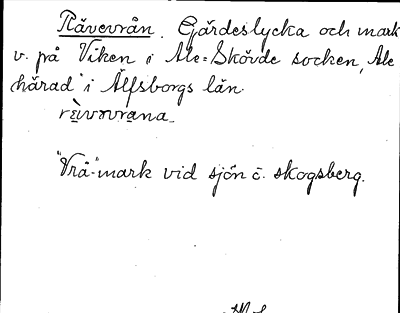 Rävevrån. Gärdeslycka och mark
v. på Viken i Ale-Skövde socken, Ale
härad i Älfsborgs län.
"Vrå"-mark vid sjön o. skogsberg.